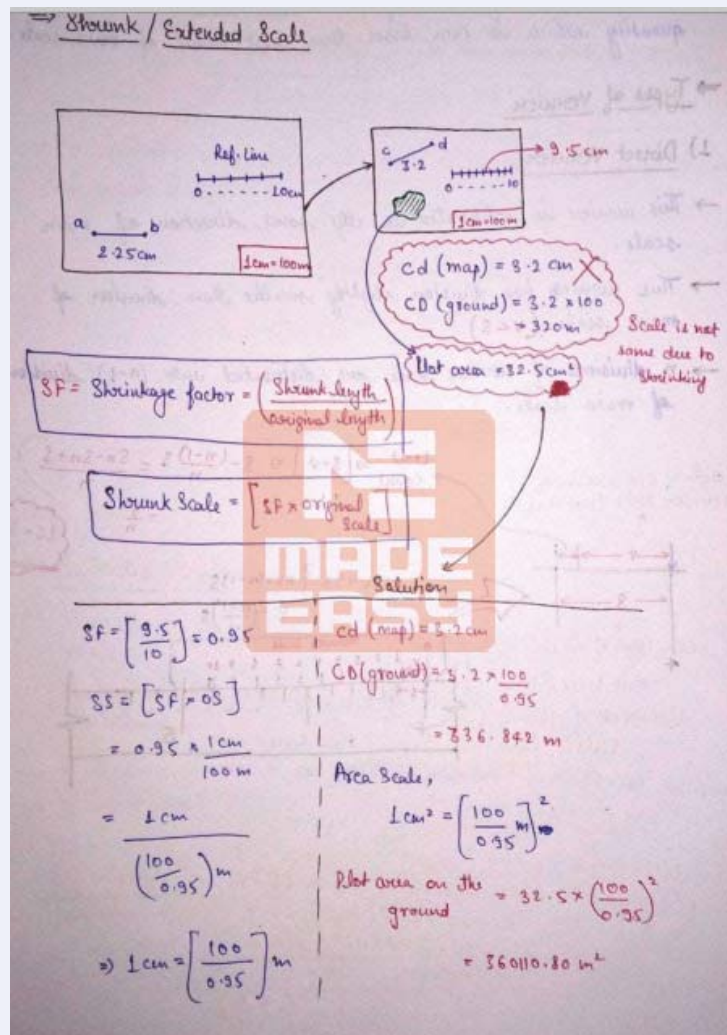 ⇒ Shrunk / Extended Scale
Ref. Line
0 - - - - - - 10cm
a b
2.25cm
1cm=100m
c d
3.2
9.5cm
0 - - - - - - 10
1cm=100m
cd (map) = 3.2 cm
CD (ground) = 3.2 x 100
= 320m
Scale is not
same due to
shrinking
Plot area = 32.5cm²
SF = Shrinkage factor = (Shrunk length / original length)
Shrunk Scale = [SF x original Scale]
MADE
EASY
Solution
SF = [9.5 / 10] = 0.95
SS = [SF x OS]
= 0.95 x 1cm / 100m
= 1cm / (100 / 0.95) m
⇒ 1cm = [100 / 0.95] m
cd (map) = 3.2cm
CD (ground) = 3.2 x 100 / 0.95
= 336.842 m
Area Scale,
1cm² = [100 / 0.95 m]²
Plot area on the
ground = 32.5 x (100 / 0.95)²
= 360110.80 m²